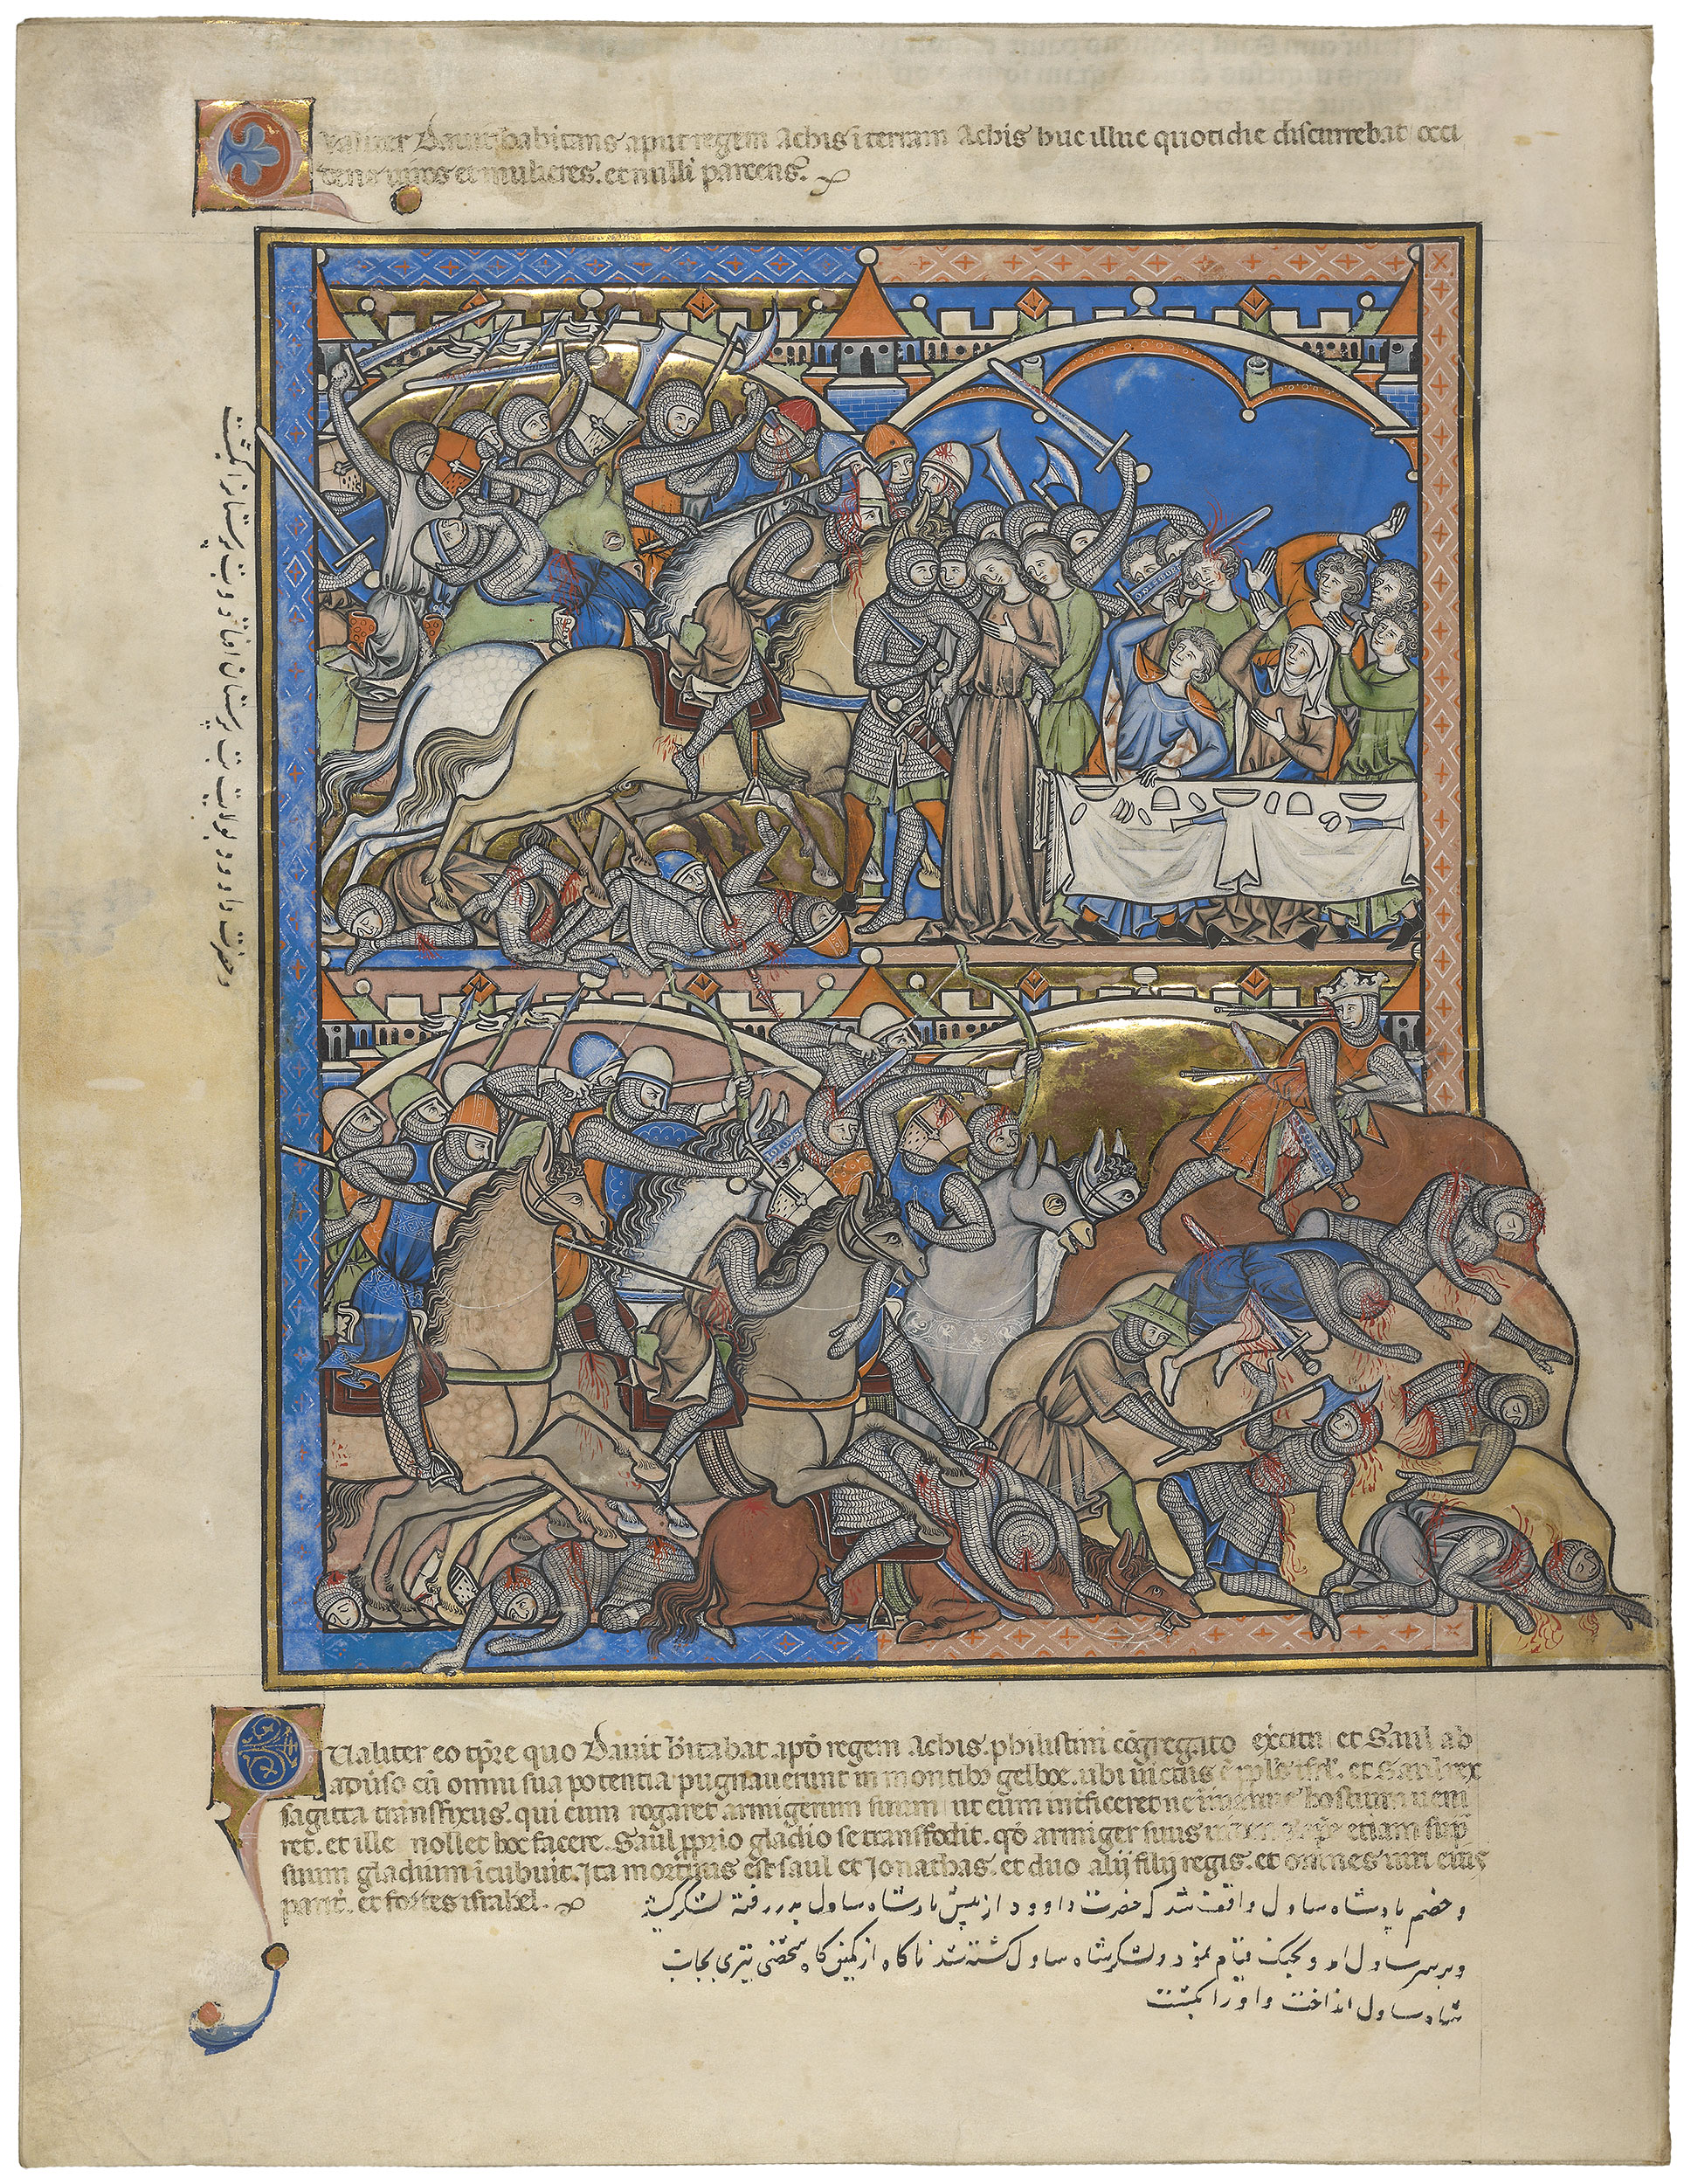 Qualiter Dauit habitans aput regem Achis ī terram Achis huc illuc quotidie discurrebat occi
dens uiros et mulieres. et nulli parcens.
و حضرت داوود بولایت بت پرستان افتاد و بت پرستانرا بکشت
Qualiter eo tp̄re quo Dauit h̄itabat apd̄ regem Achis. philistini cōgregato exc̄itu et Saul ab
aduūso cū omni sua potentia pugnauerunt in montib; gelboe. ubi uictus ē ppl̄s isrl̄. et Saul rex
sagitta transfixus. qui cum rogaret armigerum suum ut eum interficeret ne in manus hostium ueni
ret. et ille nollet hoc facere. Saul p̄prio gladio se transfodit. qd̄ armiger suus etiam sup̄
suum gladium īcubuit. Ita mortuus est saul et Jonathas. et duo alij filij regis. et omnes uiri eius
parit̄. et fortes israhel.
و خصم پادشاه ساول واقف شد که حضرت داوود از پیش پادشاه ساول بدر رفته لشکر کشید
و بر سر ساول امد و بجنک قیام نمود و لشکر شاه ساول کشته شد ناکاه از کمین کاه شخصی تیری بجانب
شاه ساول انداخت و اورا بکشت